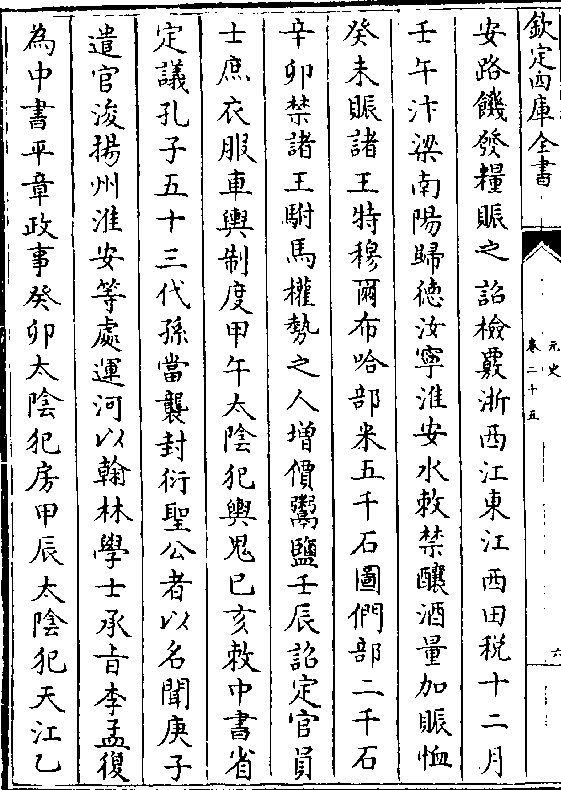 欽定四庫全書
元史
卷二十五
六
安路饑發糧賑之詔檢覈浙西江東江西田税十二月
壬午汴梁南陽歸德汝寧淮安水敕禁釀酒量加賑恤
癸未賑諸王特穆爾布哈部米五千石圖們部二千石
辛卯禁諸王駙馬權勢之人增價鬻鹽壬辰詔定官員
士庶衣服車輿制度甲午太陰犯輿鬼己亥敕中書省
定議孔子五十三代孫當襲封衍聖公者以名聞庚子
遣官浚揚州淮安等處運河以翰林學士承旨李孟復
為中書平章政事癸卯太陰犯房甲辰太陰犯天江乙